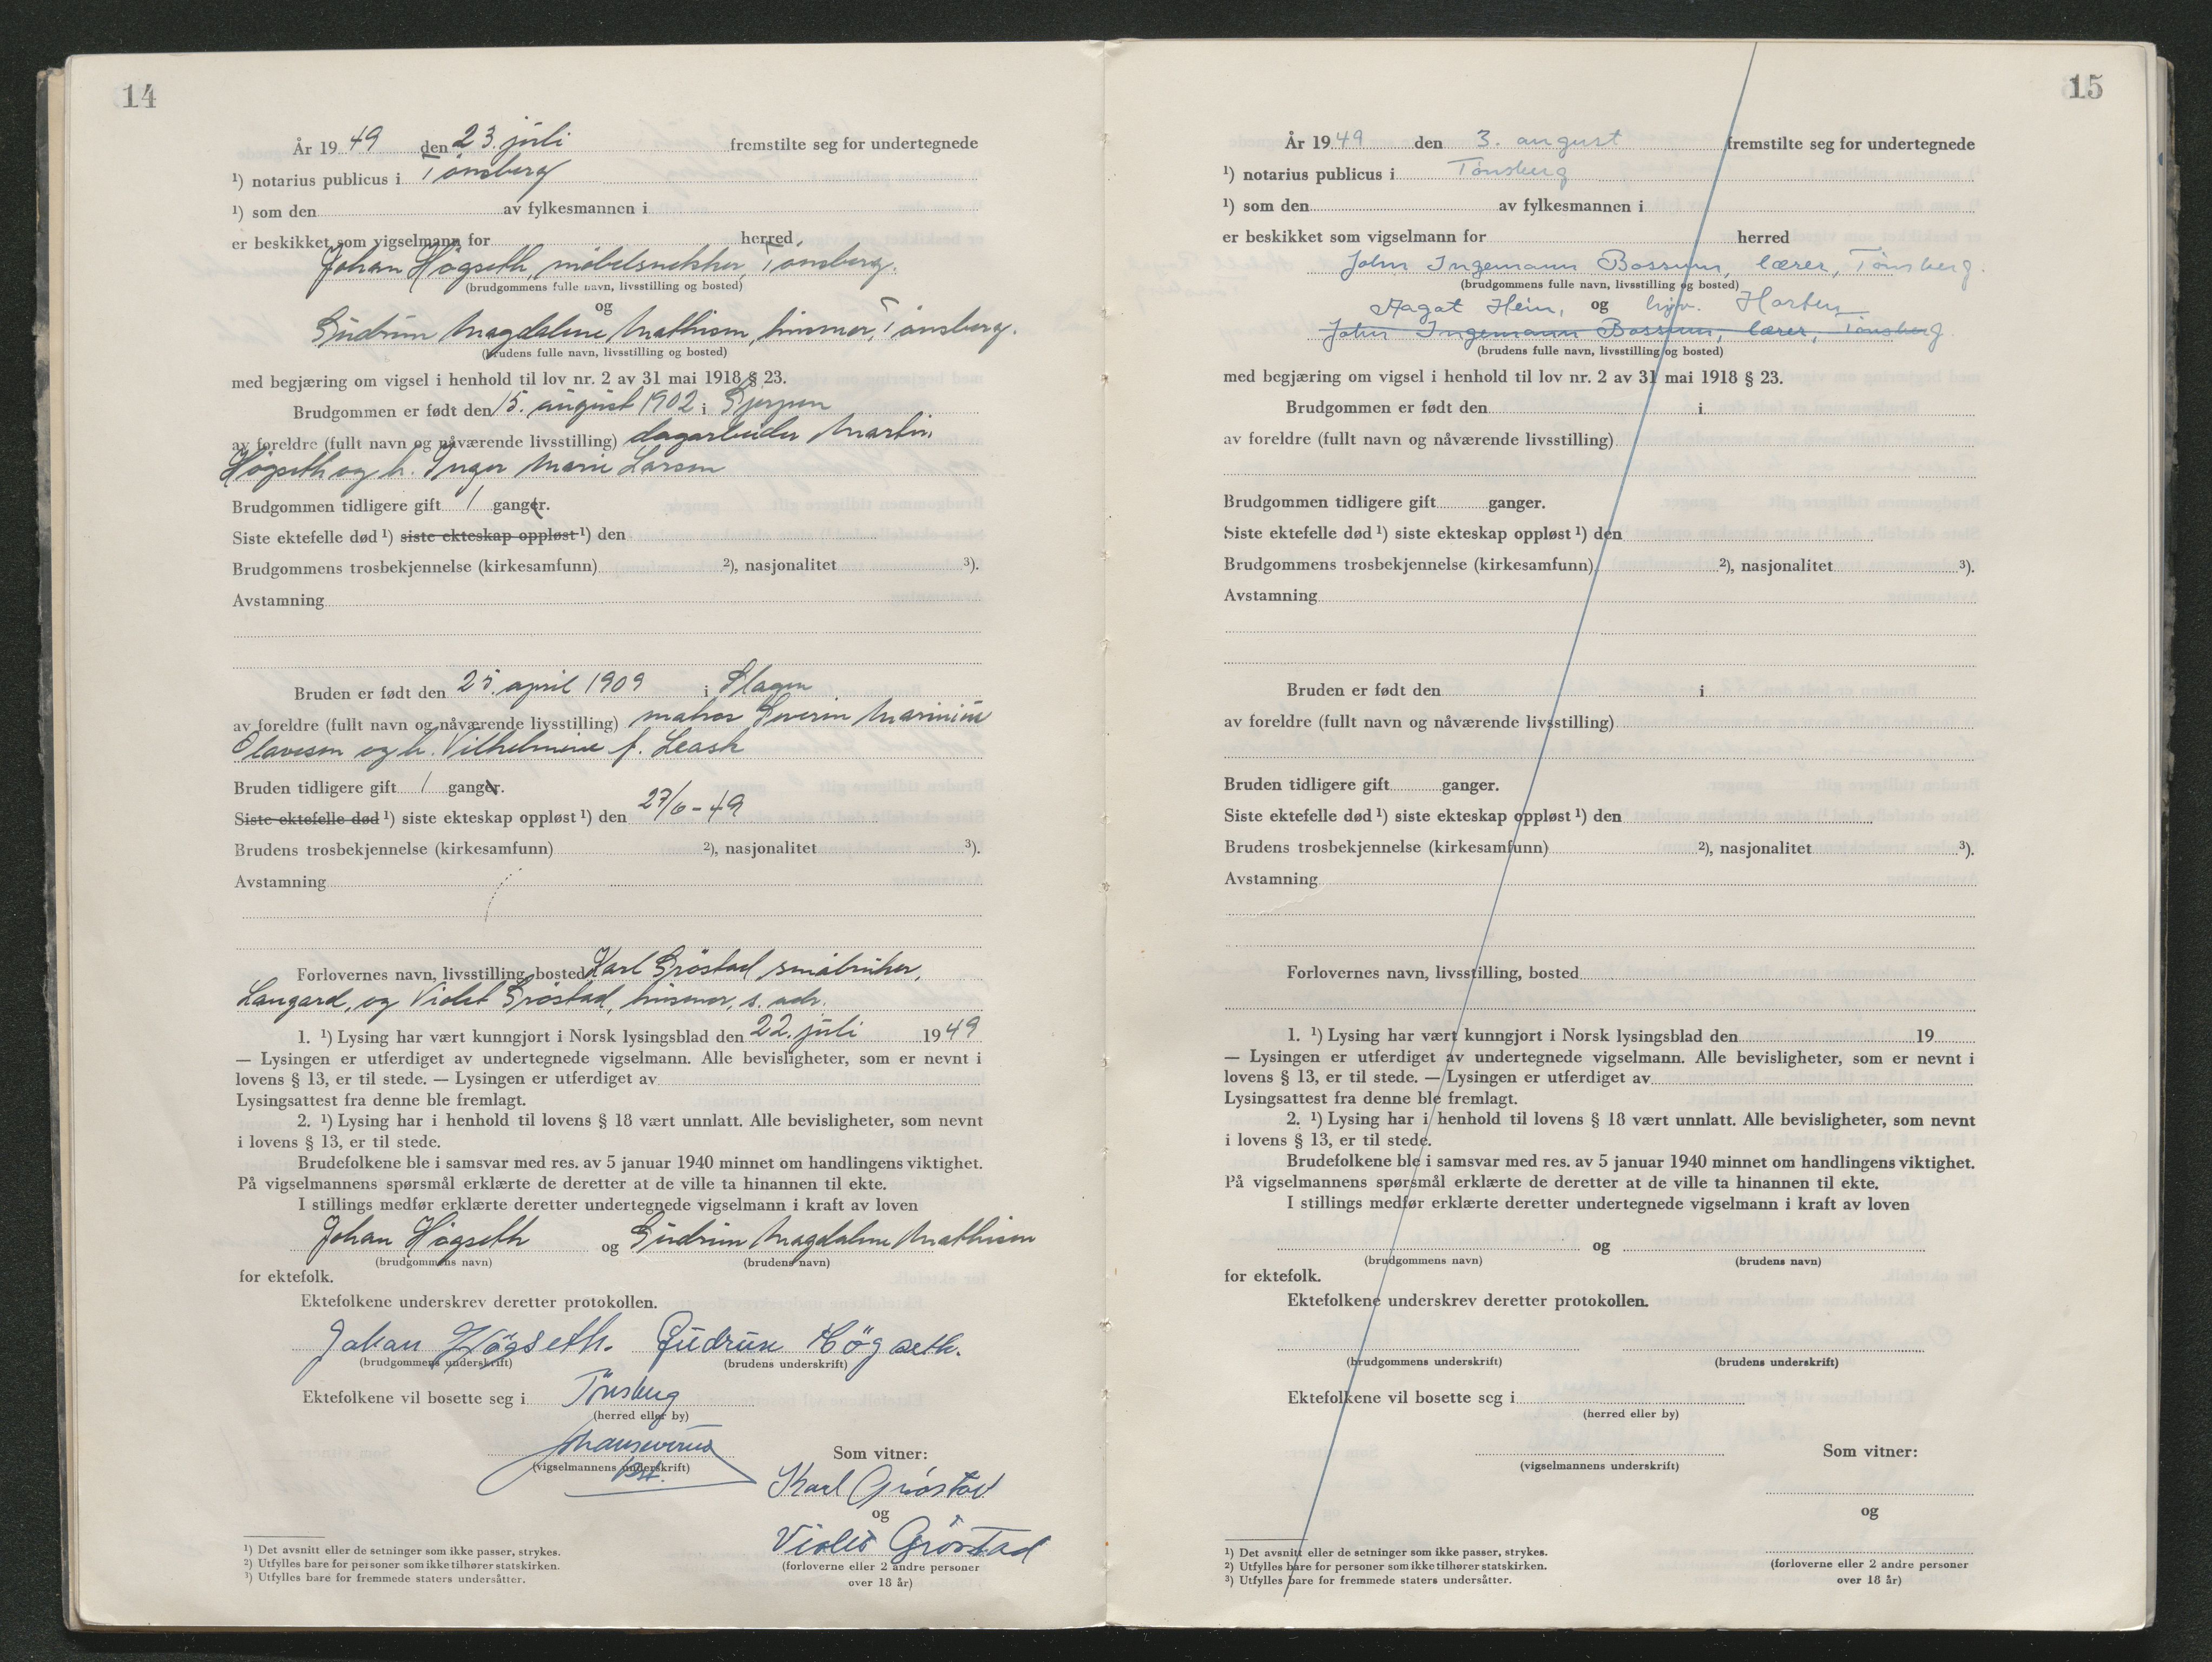 14
År 1949 den 23. juli fremstilte seg for undertegnede
¹) notarius publicus i Tønsberg
¹) som den av fylkesmannen i
er beskikket som vigselmann for herred
Johan Högseth, møbelsnekker, Tønsberg.
(brudgommens fulle navn, livsstilling og bosted)
og
Gudrun Magdalene Mathisen, husmor, Tønsberg.
(brudens fulle navn, livsstilling og bosted)
med begjæring om vigsel i henhold til lov nr. 2 av 31 mai 1918 § 23.
Brudgommen er født den 15. august 1902 i Gjerpen
av foreldre (fullt navn og nåværende livsstilling) dagarbeider Martin
Högseth og h. Inger Marie Larsen
Brudgommen tidligere gift 1 ganger.
Siste ektefelle død ¹) siste ekteskap oppløst ¹) den
Brudgommens trosbekjennelse (kirkesamfunn) ²), nasjonalitet ³).
Avstamning
Bruden er født den 25. april 1909 i Slagen
av foreldre (fullt navn og nåværende livsstilling) matros Severin Marinius
Olavesen og h. Vilhelmine f. Leask
Bruden tidligere gift 1 ganger.
Siste ektefelle død ¹) siste ekteskap oppløst ¹) den 27/6-49
Brudens trosbekjennelse (kirkesamfunn) ²), nasjonalitet ³).
Avstamning
Forlovernes navn, livsstilling, bosted Karl Gröstad, småbruker,
Langard, og Violet Gröstad, husmor, s. adr.
1. ¹) Lysing har vært kunngjort i Norsk lysingsblad den 22. juli 1949
— Lysingen er utferdiget av undertegnede vigselmann. Alle bevisligheter, som er nevnt i
lovens § 13, er til stede. — Lysingen er utferdiget av
Lysingsattest fra denne ble fremlagt.
2. ¹) Lysing har i henhold til lovens § 18 vært unnlatt. Alle bevisligheter, som nevnt
i lovens § 13, er til stede.
Brudefolkene ble i samsvar med res. av 5 januar 1940 minnet om handlingens viktighet.
På vigselmannens spørsmål erklærte de deretter at de ville ta hinannen til ekte.
I stillings medfør erklærte deretter undertegnede vigselmann i kraft av loven
Johan Högseth og Gudrun Magdalene Mathisen
(brudgommens navn) (brudens navn)
for ektefolk.
Ektefolkene underskrev deretter protokollen.
Johan Högseth. Gudrun Högseth.
(brudgommens underskrift) (brudens underskrift)
Ektefolkene vil bosette seg i Tønsberg
(herred eller by)
Som vitner:
(vigselmannens underskrift)
Karl Gröstad
og
Violet Gröstad
(forloverne eller 2 andre personer
over 18 år)
¹) Det avsnitt eller de setninger som ikke passer, strykes.
²) Utfylles bare for personer som ikke tilhører statskirken.
³) Utfylles bare for fremmede staters undersåtter.
15
År 1949 den 3. august fremstilte seg for undertegnede
¹) notarius publicus i Tønsberg
¹) som den av fylkesmannen i
er beskikket som vigselmann for herred
John Ingemann Bossum, lærer, Tønsberg.
(brudgommens fulle navn, livsstilling og bosted)
Aagot Hein, og hjv. Horten
John Ingemann Bossum, lærer, Tønsberg
(brudens fulle navn, livsstilling og bosted)
med begjæring om vigsel i henhold til lov nr. 2 av 31 mai 1918 § 23.
Brudgommen er født den i
av foreldre (fullt navn og nåværende livsstilling)
Brudgommen tidligere gift ganger.
Siste ektefelle død ¹) siste ekteskap oppløst ¹) den
Brudgommens trosbekjennelse (kirkesamfunn) ²), nasjonalitet ³).
Avstamning
Bruden er født den i
av foreldre (fullt navn og nåværende livsstilling)
Bruden tidligere gift ganger.
Siste ektefelle død ¹) siste ekteskap oppløst ¹) den
Brudens trosbekjennelse (kirkesamfunn) ²), nasjonalitet ³).
Avstamning
Forlovernes navn, livsstilling, bosted
1. ¹) Lysing har vært kunngjort i Norsk lysingsblad den 19
— Lysingen er utferdiget av undertegnede vigselmann. Alle bevisligheter, som er nevnt i
lovens § 13, er til stede. — Lysingen er utferdiget av
Lysingsattest fra denne ble fremlagt.
2. ¹) Lysing har i henhold til lovens § 18 vært unnlatt. Alle bevisligheter, som nevnt
i lovens § 13, er til stede.
Brudefolkene ble i samsvar med res. av 5 januar 1940 minnet om handlingens viktighet.
På vigselmannens spørsmål erklærte de deretter at de ville ta hinannen til ekte.
I stillings medfør erklærte deretter undertegnede vigselmann i kraft av loven
og
(brudgommens navn) (brudens navn)
for ektefolk.
Ektefolkene underskrev deretter protokollen.
(brudgommens underskrift) (brudens underskrift)
Ektefolkene vil bosette seg i
(herred eller by)
Som vitner:
(vigselmannens underskrift)
og
(forloverne eller 2 andre personer
over 18 år)
¹) Det avsnitt eller de setninger som ikke passer, strykes.
²) Utfylles bare for personer som ikke tilhører statskirken.
³) Utfylles bare for fremmede staters undersåtter.